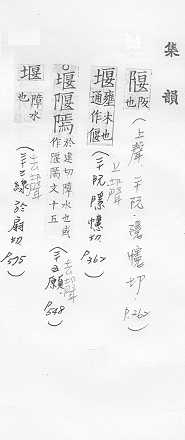 集韻
隁阪也(上聲.二十阮.隱幰切.P.362)
堰壅水也通作偃(二十阮隱幰切P362)
上聲
堰隁隔於建切障水也或作隁隔文十五(去聲二十五願P548)
堰障水也(去聲三十三線於扇切P575)